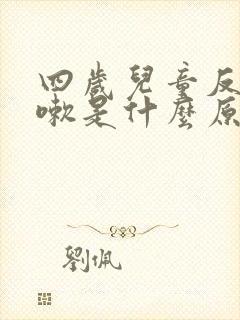 四歲兒童反
嗽是什麼原
劉佩